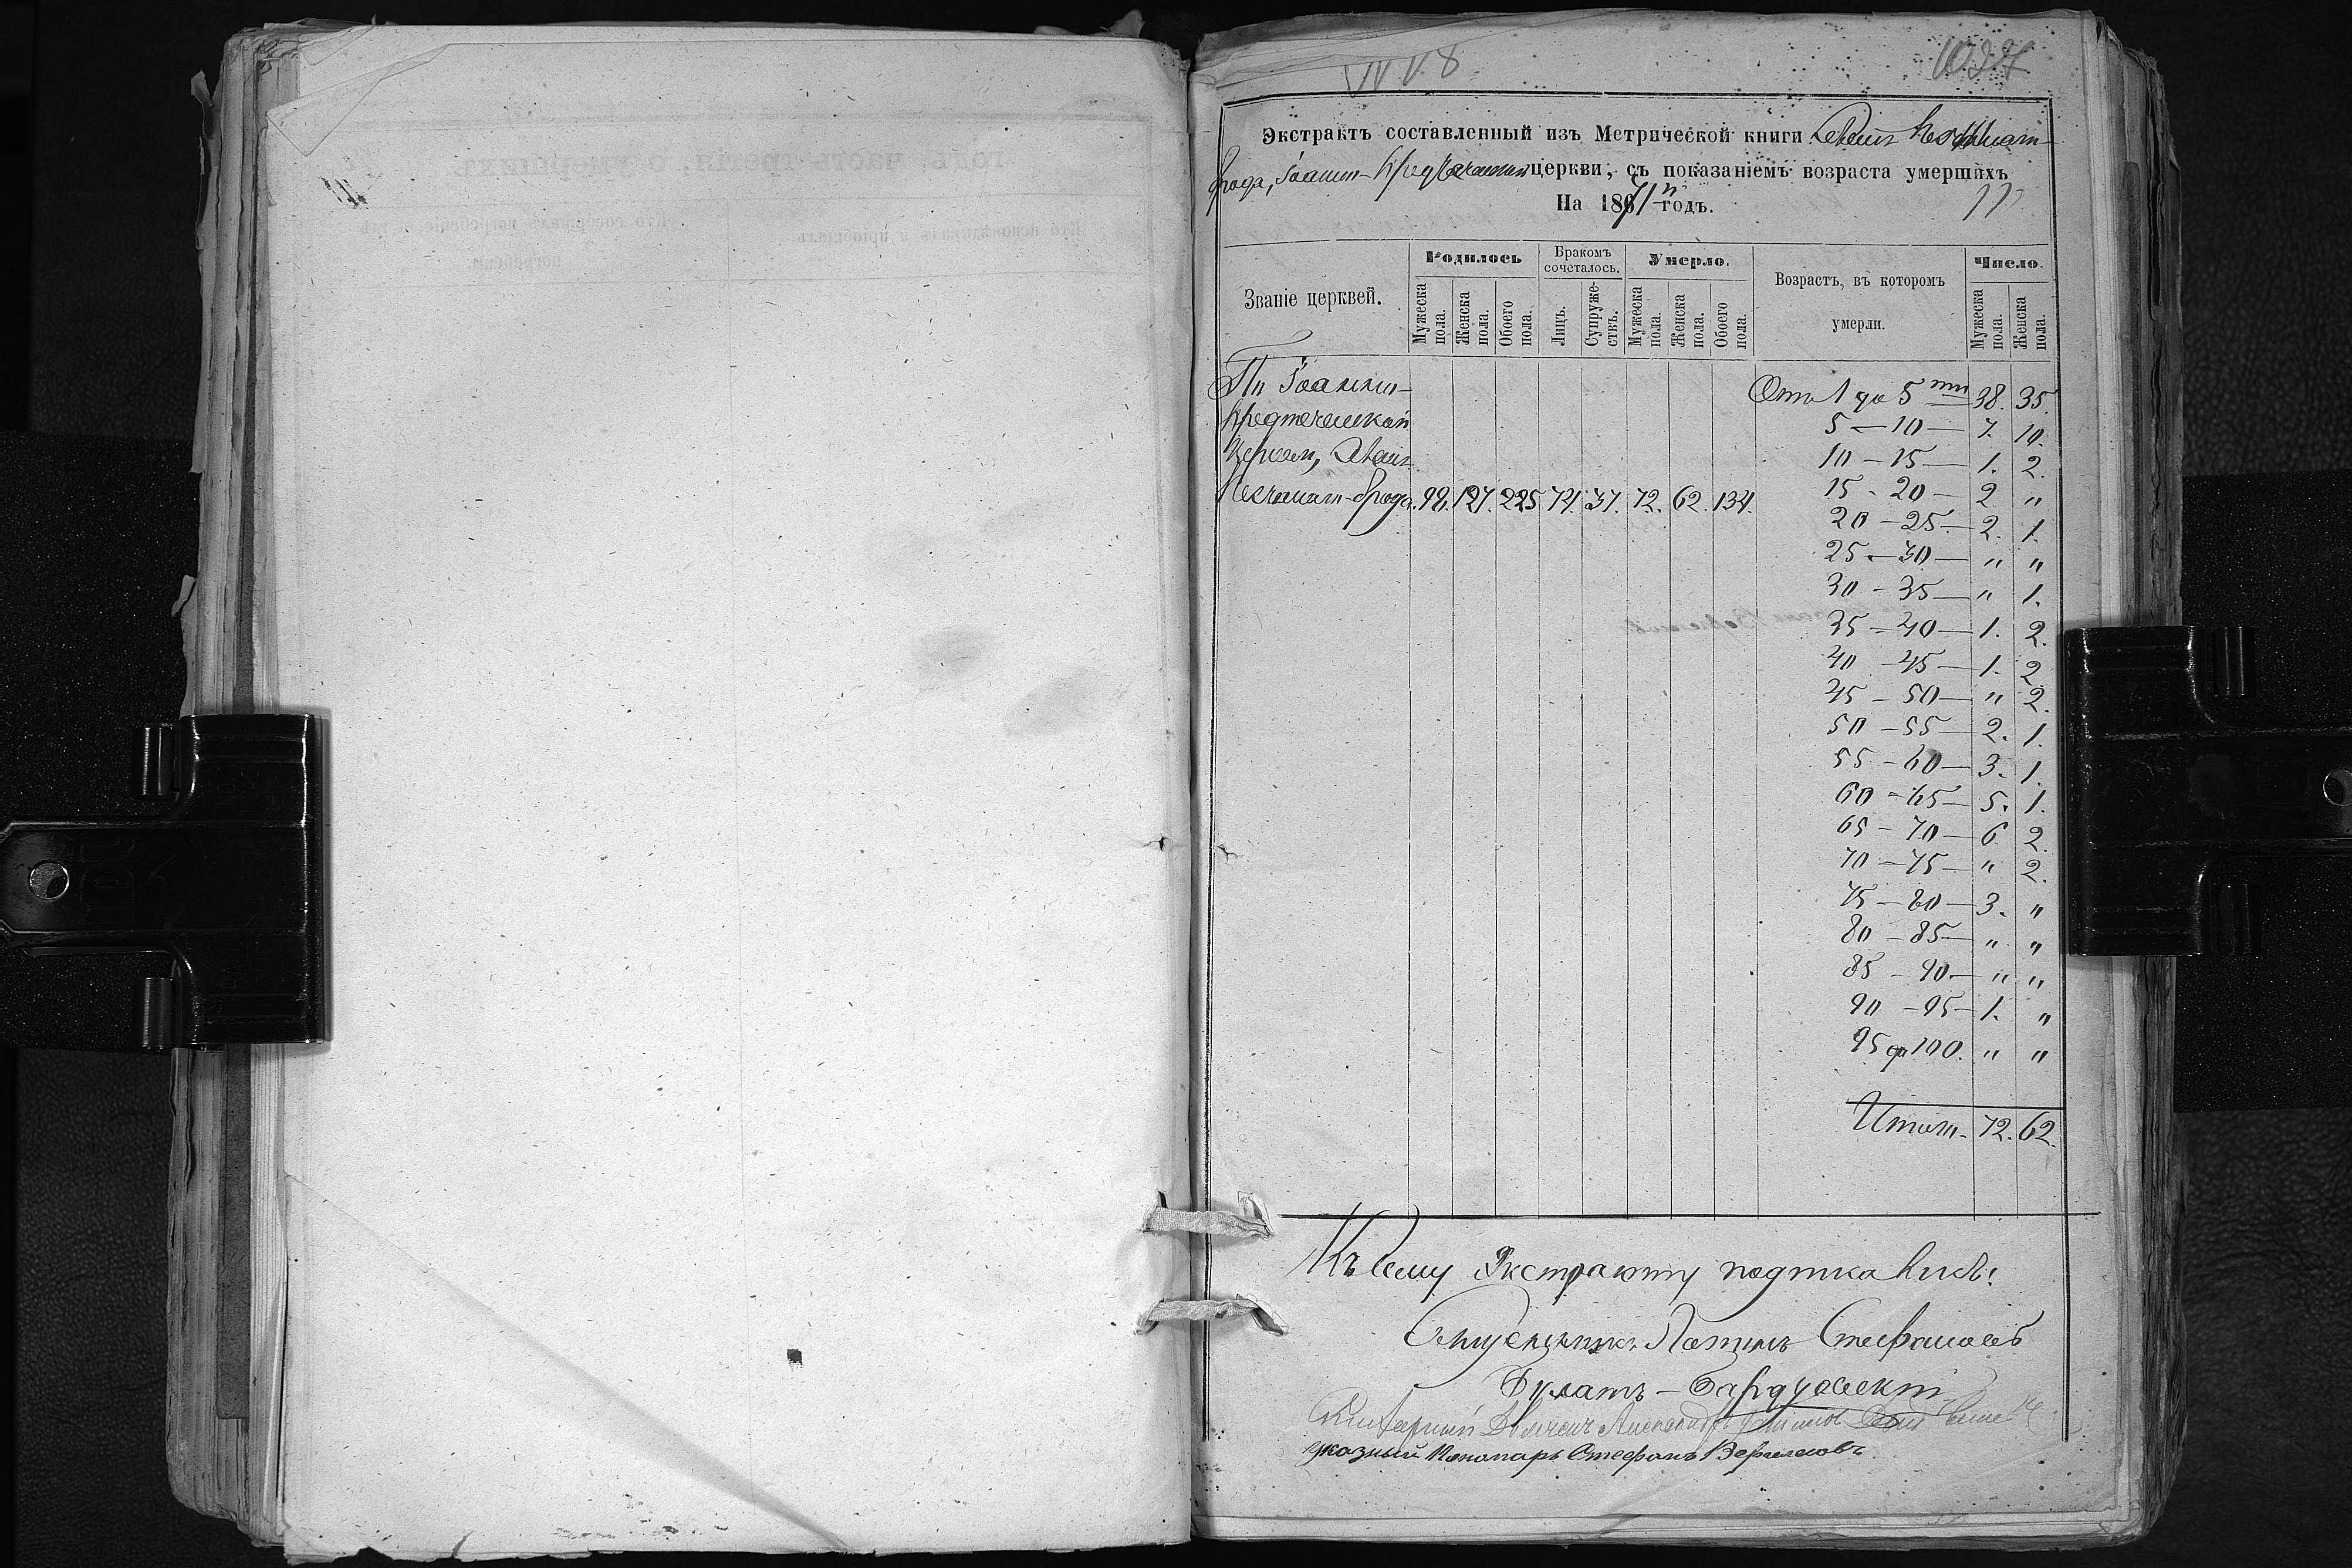 1027
Экстрактъ составленный изъ Метрической книги
брода, Іоанно-Предтеченской церкви, съ показаніемъ возраста умершихъ
На 1871й годъ.
Званіе церквей.
Родилось
Бракомъ сочеталось.
Умерло.
Возрастъ, въ которомъ умерли.
Число.
Мужеска пола.
Женска пола.
Обоего пола.
Лицъ.
Супружествъ.
Мужеска пола.
Женска пола.
Обоего пола.
Мужеска пола.
Женска пола.
По Іоанно-
Предтеченской
Церкви,
Песчанаго-брода. 98. 127. 225 74. 37. 72. 62. 134.
Отъ 1 до 5ти 38. 35.
5 — 10 — 7. 10.
10 — 15 — 1. 2.
15 - 20 — 2 "
20 — 25 — 2. 1.
25 — 30 — " "
30 - 35 — " 1.
35 — 40 — 1. 2.
40 — 45 — 1. 2
45 — 50 — " 2.
50 — 55 — 2. 1.
55 — 60 — 3. 1.
60 — 65 — 5. 1.
65 — 70 — 6 2.
70 — 75 — " 2.
75 — 80 — 3. "
80 — 85 — " "
85 — 90 — " "
90 — 95 — 1. "
95 до 100. " "
Итого. 72. 62.
Къ сему Экстракту подписались:
Стефановъ
указный Пономарь Стефанъ